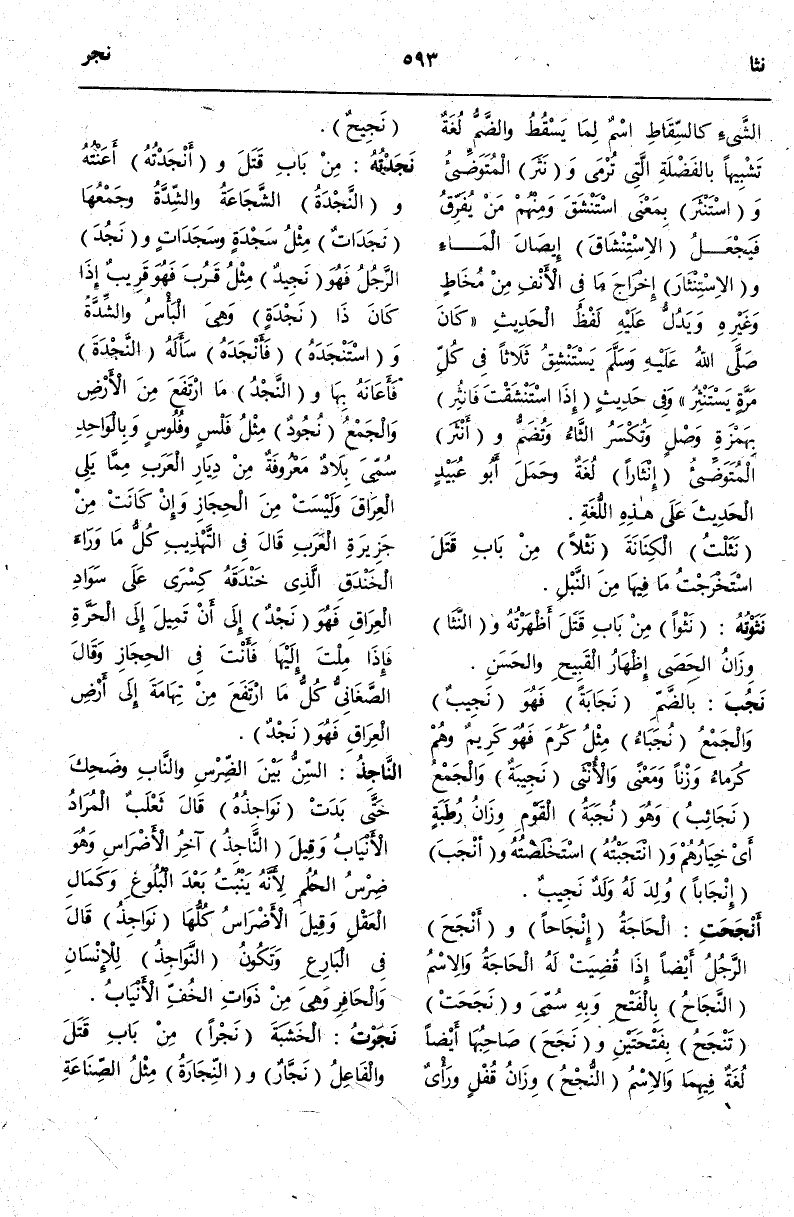 نثا
٥٩٣
نجر
الشَّىءِ كالسِّقَاطِ اسْمٌ لِمَا يَسْقُطُ والضَّمُّ لُغَةٌ
تَشْبِيهاً بالفَضْلَةِ الَّتِى تُرْمَى وَ ( نَثَرَ ) الْمُتَوَضِّئُ
وَ ( اسْتَنْثَرَ ) بِمَعْنَى اسْتَنْشَقَ وَمِنْهُمْ مَنْ يُفَرِّقُ
فَيَجْعَلُ ( الاِسْتِنْشَاقَ ) إِيصَالَ الْمَاءِ
و ( الاِسْتِنْثَارَ ) إخْرَاجَ مَا فى الْأَنْفِ مِنْ مُخَاطٍ
وَغَيْرِهِ وَيَدُلُّ عَلَيْهِ لَفْظُ الْحَدِيثِ « كَانَ
صَلَّى اللهُ عَلَيْهِ وَسَلَّمَ يَسْتَنْشِقُ ثَلَاثاً فِى كُلِّ
مَرَّةٍ يَسْتَنْثِرُ » وَفِى حَدِيثٍ ( إِذَا اسْتَنْشَقْتَ فَانْثِرْ )
بِهَمْزَةِ وَصْلٍ وَتُكْسَرُ الثَّاءُ وَتُضَمُّ و ( أَنْثَرَ )
الْمُتَوَضِّئُ ( إِنْثَاراً ) لُغَةٌ وحَمَلَ أَبُو عُبَيْدٍ
الْحَدِيثَ عَلَى هٰذِهِ اللُّغَةِ .
( نَثَلْتُ ) الْكِنَانَةَ ( نَثْلاً ) مِنْ بَابِ قَتَلَ
اسْتَخْرَجْتُ مَا فِيهَا مِنَ النَّبْلِ .
نَثَوْتُهُ : ( نَثْواً ) مِنْ بَابِ قَتَلَ أَظْهَرْتُهُ و ( النَّثَا )
وِزَانُ الحَصَى إِظْهَارُ الْقَبِيحِ والحَسَنِ .
نَجُبَ : بالضَّمِّ ( نَجَابَةً ) فَهُوَ ( نَجِيبٌ )
وَالْجَمْعُ ( نُجَبَاءُ ) مِثْلُ كَرُمَ فَهُوَ كَرِيمٌ وهُمْ
كُرَمَاءُ وَزْناً وَمَعْنًى وَالْأُنْثَى ( نَجِيبَةٌ ) وَالْجَمْعُ
( نَجَائِبُ ) وَهُوَ ( نُجَبَةُ ) الْقَوْمِ وِزَانُ رُطَبَةٍ
أَىْ خِيَارُهُمْ وَ ( انْتَجَبْتُهُ ) اسْتَخْلَصْتُهُ و ( أَنْجَبَ )
( إِنْجَاباً ) وُلِدَ لَهُ وَلَدٌ نَجِيبٌ .
أَنْجَحَتِ : الْحَاجَةُ ( إِنْجَاحاً ) و ( أَنْجَحَ )
الرَّجُلُ أَيْضاً إذَا قُضِيَتْ لَهُ الْحَاجَةُ وَالاِسْمُ
( النَّجَاحُ ) بِالْفَتْحِ وَبِهِ سُمِّىَ و ( نَجَحَتْ )
( تَنْجَحُ ) بِفَتْحَتَيْنِ و ( نَجَحَ ) صَاحِبُهَا أَيْضاً
لُغَةٌ فِيهِمَا وَالاِسْمُ ( النُّجْحُ ) وِزَانُ قُفْلٍ ورَأْىٌ
( نَجِيحٌ ) .
نَجَدْتُهُ : مِنْ بَابِ قَتَلَ و ( أَنْجَدْتُهُ ) أَعَنْتُهُ
و ( النَّجْدَةُ ) الشَّجَاعَةُ والشِّدَّةُ وجَمْعُهَا
( نَجَدَاتٌ ) مِثْلُ سَجْدَةٍ وسَجَدَاتٍ و ( نَجُدَ )
الرَّجُلُ فَهُوَ ( نَجِيدٌ ) مِثْلُ قَرُبَ فَهُوَ قَرِيبٌ إِذَا
كَانَ ذَا ( نَجْدَةٍ ) وَهِىَ الْبَأْسُ والشِّدَّةُ
وَ ( اسْتَنْجَدَهُ ) ( فَأَنْجَدَهُ ) سَأَلَهُ ( النَّجْدَةَ )
فَأَعَانَهُ بِهَا و ( النَّجْدُ ) مَا ارْتَفَعَ مِنَ الْأَرْضِ
وَالْجَمْعُ ( نُجُودٌ ) مِثْلُ فَلْسٍ وفُلُوسٍ وَبِالْوَاحِدِ
سُمِّىَ بِلَادٌ مَعْرُوفَةٌ مِنْ دِيَارِ الْعَرَبِ مِمَّا يَلِى
الْعِرَاقَ وَلَيْسَتْ مِنَ الْحِجَازِ وَإِنْ كَانَتْ مِنْ
جَزِيرَةِ الْعَرَبِ قَالَ فِى التَّهْذِيبِ كُلُّ مَا وَرَاءَ
الْخَنْدَقِ الَّذِى خَنْدَقَهُ كِسْرَى عَلَى سَوَادِ
الْعِرَاقِ فَهُوَ ( نَجْدٌ ) إِلَى أَنْ تَمِيلَ إِلَى الْحَرَّةِ
فَإِذَا مِلْتَ إِلَيْهَا فَأَنْتَ فى الحِجَازِ وَقَالَ
الصَّغَانِىُّ كُلُّ مَا ارْتَفَعَ مِنْ تِهَامَةَ إِلَى أَرْضِ
الْعِرَاقِ فَهُوَ ( نَجْدٌ ) .
النَّاجِذُ : السِّنُّ بَيْنَ الضِّرْسِ والنَّابِ وضَحِكَ
حَتَّى بَدَتْ ( نَوَاجِذُهُ ) قَالَ ثَعْلَبٌ الْمُرَادُ
الْأَنْيَابُ وَقِيلَ ( النَّاجِذُ ) آخِرُ الْأَضْرَاسِ وَهُوَ
ضِرْسُ الْحُلُمِ لِأَنَّهُ يَنْبُتُ بَعْدَ الْبُلُوغِ وَكَمَالِ
الْعَقْلِ وَقِيلَ الْأَضْرَاسُ كُلُّهَا ( نَوَاجِذُ ) قَالَ
فى الْبَارِعِ وَتَكُونُ ( النَّوَاجِذُ ) لِلْإِنْسَانِ
وَالْحَافِرِ وَهِىَ مِنْ ذَوَاتِ الخُفِّ الْأَنْيَابُ .
نَجَرْتُ : الْخَشَبَةَ ( نَجْراً ) مِنْ بَابِ قَتَلَ
والْفَاعِلُ ( نَجَّارٌ ) و ( النِّجَارَةُ ) مِثْلُ الصِّنَاعَةِ